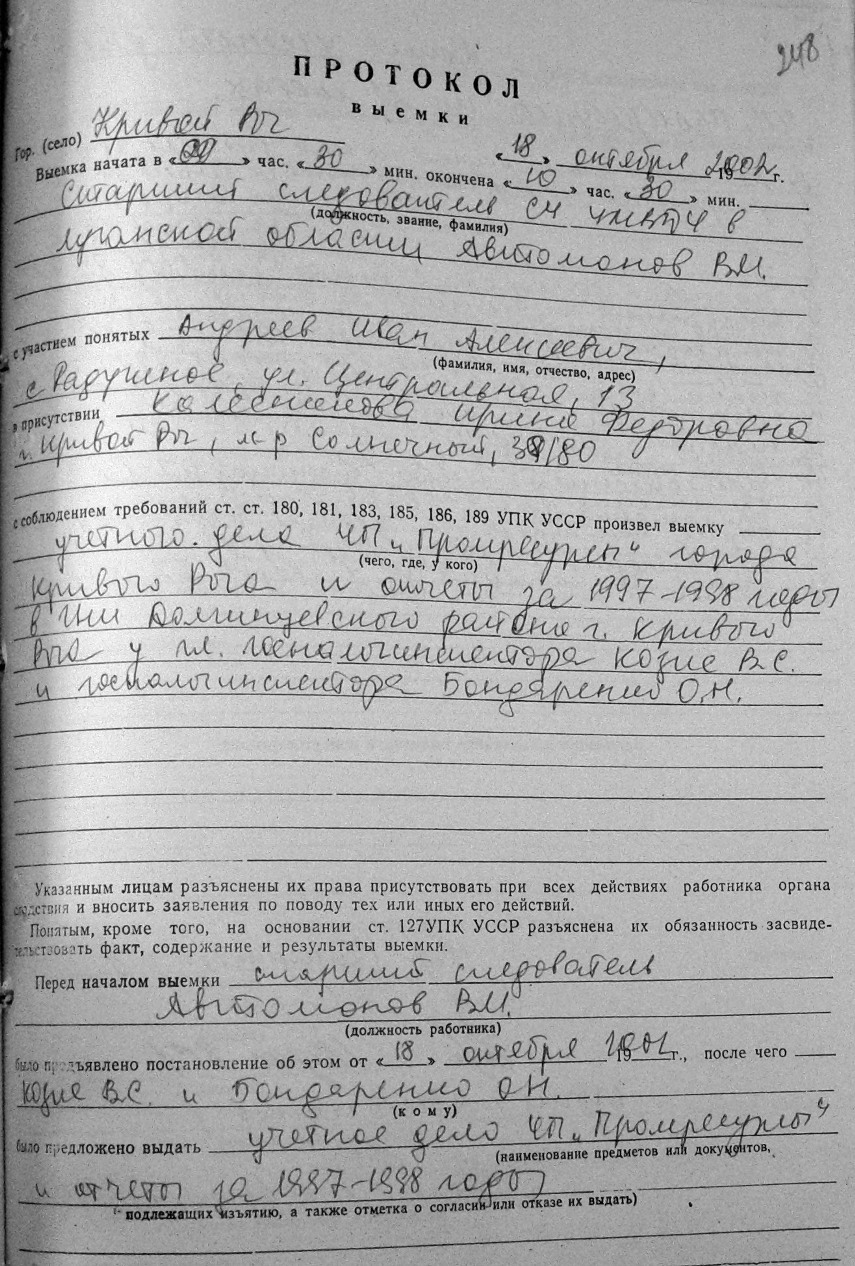 248
ПРОТОКОЛ
выемки
Гор. (село) Кривой Рог « 18 » октября 2002 г.
Выемка начата в « 09 » час. « 30 » мин. окончена « 10 » час. « 30 » мин.
Старший следователь СЧ УМВД в
(должность, звание, фамилия)
Луганской области Автомонов В.И.
с участием понятых Андреев Иван Алексеевич,
(фамилия, имя, отчество, адрес)
с. Радушное, ул. Центральная, 13
в присутствии Колесникова Ирина Федоровна
г. Кривой Рог, м-р Солнечный, /80
с соблюдением требований ст. ст. 180, 181, 183, 185, 186, 189 УПК УССР произвел выемку
учетного дела ЧП „Промресурсы“ города
(чего, где, у кого)
Кривого Рога и отчеты за 1997-1998 годы
в Долгинцевского района г. Кривого
Рога у гл. госналогинспектора Козие В.С.
и госналогинспектора Бондаренко О.Н.
Указанным лицам разъяснены их права присутствовать при всех действиях работника органа
следствия и вносить заявления по поводу тех или иных его действий.
Понятым, кроме того, на основании ст. 127УПК УССР разъяснена их обязанность засвиде-
тельствовать факт, содержание и результаты выемки.
Перед началом выемки старший следователь
Автомонов В.И.
(должность работника)
было предъявлено постановление об этом от « 18 » октября 2002 г., после чего
Козие В.С. и Бондаренко О.Н.
(кому)
было предложено выдать учетное дело ЧП „Промресурсы“
(наименование предметов или документов,
и отчеты за 1997-1998 годы
подлежащих изъятию, а также отметка о согласии или отказе их выдать)